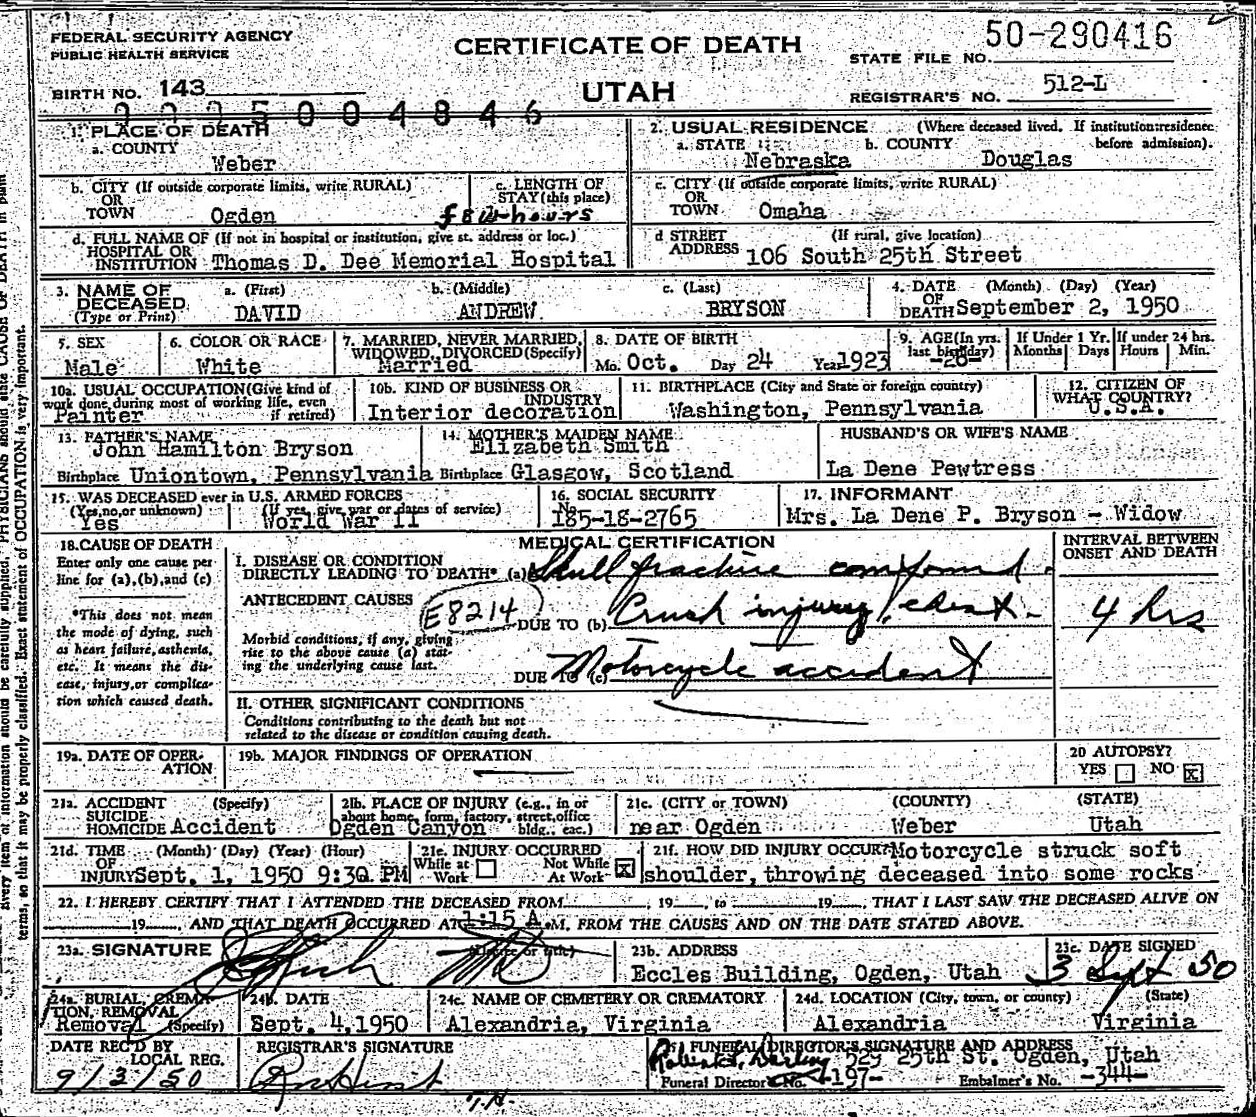 FEDERAL SECURITY AGENCY
PUBLIC HEALTH SERVICE
CERTIFICATE OF DEATH
UTAH
STATE FILE NO. 50-290416
REGISTRAR'S NO. 512-L
BIRTH NO. 143
1. PLACE OF DEATH
a. COUNTY
Weber
2. USUAL RESIDENCE (Where deceased lived. If institution: residence before admission).
a. STATE Nebraska b. COUNTY Douglas
b. CITY (If outside corporate limits, write RURAL)
OR
TOWN Ogden
c. LENGTH OF
STAY (this place)
few hours
c. CITY (If outside corporate limits, write RURAL)
OR
TOWN Omaha
d. FULL NAME OF (If not in hospital or institution, give st. address or loc.)
HOSPITAL OR
INSTITUTION Thomas D. Dee Memorial Hospital
d STREET (If rural, give location)
ADDRESS 106 South 25th Street
3. NAME OF DECEASED (Type or Print)
a. (First) b. (Middle) c. (Last)
DAVID ANDREW BRYSON
4. DATE (Month) (Day) (Year)
OF
DEATH September 2, 1950
5. SEX
Male
6. COLOR OR RACE
White
7. MARRIED, NEVER MARRIED,
WIDOWED, DIVORCED (Specify)
Married
8. DATE OF BIRTH
Mo. Oct. Day 24 Year 1923
9. AGE (In yrs.
last birthday)
-26-
If Under 1 Yr.
Months Days
If under 24 hrs.
Hours Min.
10a. USUAL OCCUPATION (Give kind of
work done during most of working life, even
if retired)
Painter
10b. KIND OF BUSINESS OR
INDUSTRY
Interior decoration
11. BIRTHPLACE (City and State or foreign country)
Washington, Pennsylvania
12. CITIZEN OF
WHAT COUNTRY?
U.S.A.
13. FATHER'S NAME
John Hamilton Bryson
Birthplace Uniontown, Pennsylvania
14. MOTHER'S MAIDEN NAME
Elizabeth Smith
Birthplace Glasgow, Scotland
HUSBAND'S OR WIFE'S NAME
La Dene Pewtress
15. WAS DECEASED ever in U.S. ARMED FORCES
(Yes, no, or unknown) (If yes, give war or dates of service)
Yes World War II
16. SOCIAL SECURITY
No.
185-18-2765
17. INFORMANT
Mrs. La Dene P. Bryson - Widow
18. CAUSE OF DEATH
Enter only one cause per
line for (a), (b), and (c)
*This does not mean
the mode of dying, such
as heart failure, asthenia,
etc. It means the dis-
ease, injury, or complica-
tion which caused death.
MEDICAL CERTIFICATION
INTERVAL BETWEEN
ONSET AND DEATH
I. DISEASE OR CONDITION
DIRECTLY LEADING TO DEATH* (a) Skull fracture compound.
ANTECEDENT CAUSES
E8214
DUE TO (b) Crush injury chest -
4 hrs
Morbid conditions, if any, giving
rise to the above cause (a) stat-
ing the underlying cause last.
DUE TO (c) Motorcycle accident
II. OTHER SIGNIFICANT CONDITIONS
Conditions contributing to the death but not
related to the disease or condition causing death.
19a. DATE OF OPER-
ATION
19b. MAJOR FINDINGS OF OPERATION
20 AUTOPSY?
YES NO X
21a. ACCIDENT (Specify)
SUICIDE
HOMICIDE Accident
21b. PLACE OF INJURY (e.g., in or
about home, form, factory, street, office
bldg., eac.)
Ogden Canyon
21c. (CITY or TOWN) (COUNTY) (STATE)
near Ogden Weber Utah
21d. TIME (Month) (Day) (Year) (Hour)
OF
INJURY Sept. 1, 1950 9:30 PM
21e. INJURY OCCURRED
While at Work Not While At Work X
21f. HOW DID INJURY OCCUR? Motorcycle struck soft
shoulder, throwing deceased into some rocks
22. I HEREBY CERTIFY THAT I ATTENDED THE DECEASED FROM 19 , to 19 , THAT I LAST SAW THE DECEASED ALIVE ON
19 , AND THAT DEATH OCCURRED AT 1:15 A.M. FROM THE CAUSES AND ON THE DATE STATED ABOVE.
23a. SIGNATURE
23b. ADDRESS
Eccles Building, Ogden, Utah
23c. DATE SIGNED
3 Sept 50
24a. BURIAL, CREMA-
TION, REMOVAL
Removal (Specify)
24b. DATE
Sept. 4, 1950
24c. NAME OF CEMETERY OR CREMATORY
Alexandria, Virginia
24d. LOCATION (City, town, or county) (State)
Alexandria Virginia
DATE REC'D BY
LOCAL REG.
9/3/50
REGISTRAR'S SIGNATURE
25. FUNERAL DIRECTOR'S SIGNATURE AND ADDRESS
529 25th St. Ogden, Utah
Funeral Director No. -197- Embalmer's No. -344-